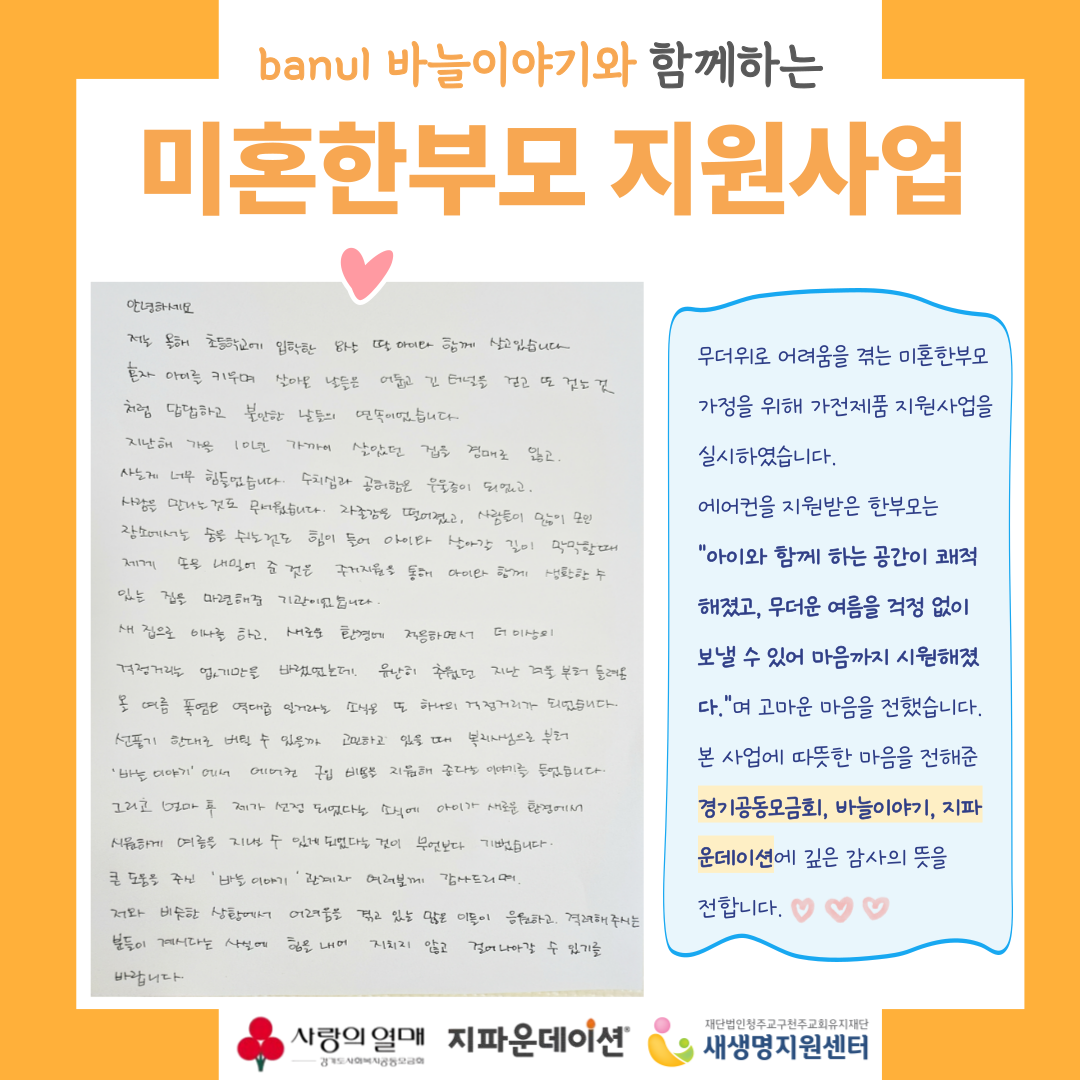 banul 바늘이야기와 함께하는
미혼한부모 지원사업
안녕하세요
저는 올해 초등학교에 입학한 8살 딸 아이와 함께 살고있습니다
혼자 아이를 키우며 살아온 날들은 어둡고 긴 터널을 걷고 또 걷는 것
처럼 답답하고 불안한 날들의 연속이었습니다.
지난해 가을 10년 가까이 살았던 집을 경매로 잃고.
사는게 너무 힘들었습니다. 수치심과 공허함은 우울증이 되었고.
사람을 만나는것도 무서웠습니다. 자존감은 떨어졌고, 사람들이 많이 모인
장소에서는 숨을 쉬는것도 힘이 들어 아이와 살아갈 길이 막막할때
제게 손을 내밀어 준 것은 주거지원을 통해 아이와 함께 생활할 수
있는 집을 마련해준 기관이었습니다.
새 집으로 이사를 하고. 새로운 환경에 적응하면서 더 이상의
걱정거리는 없기만을 바랬었는데. 유난히 추웠던 지난 겨울 부터 들려온
올 여름 폭염은 역대급 일거라는 소식은 또 하나의 걱정거리가 되었습니다.
선풍기 한대로 버틸 수 있을까 고민하고 있을 때 복지사님으로 부터
'바늘 이야기' 에서 에어컨 구입 비용을 지원해 준다는 이야기를 들었습니다.
그리고 얼마 후 제가 선정 되었다는 소식에 아이가 새로운 환경에서
시원하게 여름을 지낼 수 있게 되었다는 것이 무엇보다 기뻤습니다.
큰 도움을 주신 '바늘 이야기' 관계자 여러분께 감사드리며.
저와 비슷한 상황에서 어려움을 겪고 있는 많은 이들이 응원하고. 격려해주시는
분들이 계시다는 사실에 힘을 내어 지치지 않고 걸어나아갈 수 있기를
바랍니다.
무더위로 어려움을 겪는 미혼한부모
가정을 위해 가전제품 지원사업을
실시하였습니다.
에어컨을 지원받은 한부모는
"아이와 함께 하는 공간이 쾌적
해졌고, 무더운 여름을 걱정 없이
보낼 수 있어 마음까지 시원해졌
다."며 고마운 마음을 전했습니다.
본 사업에 따뜻한 마음을 전해준
경기공동모금회, 바늘이야기, 지파
운데이션에 깊은 감사의 뜻을
전합니다.
사랑의열매
경기도사회복지공동모금회
지파운데이션®
재단법인청주교구천주교회유지재단
새생명지원센터